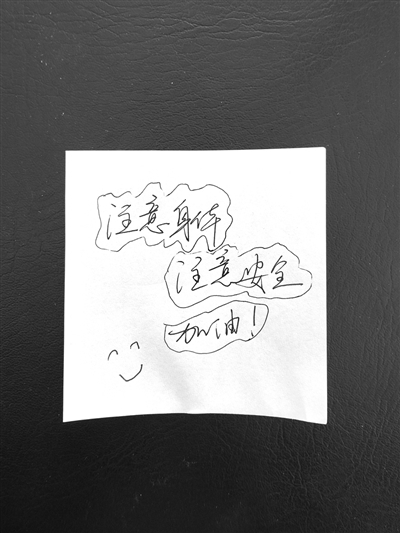 注意身体
注意安全
加油！